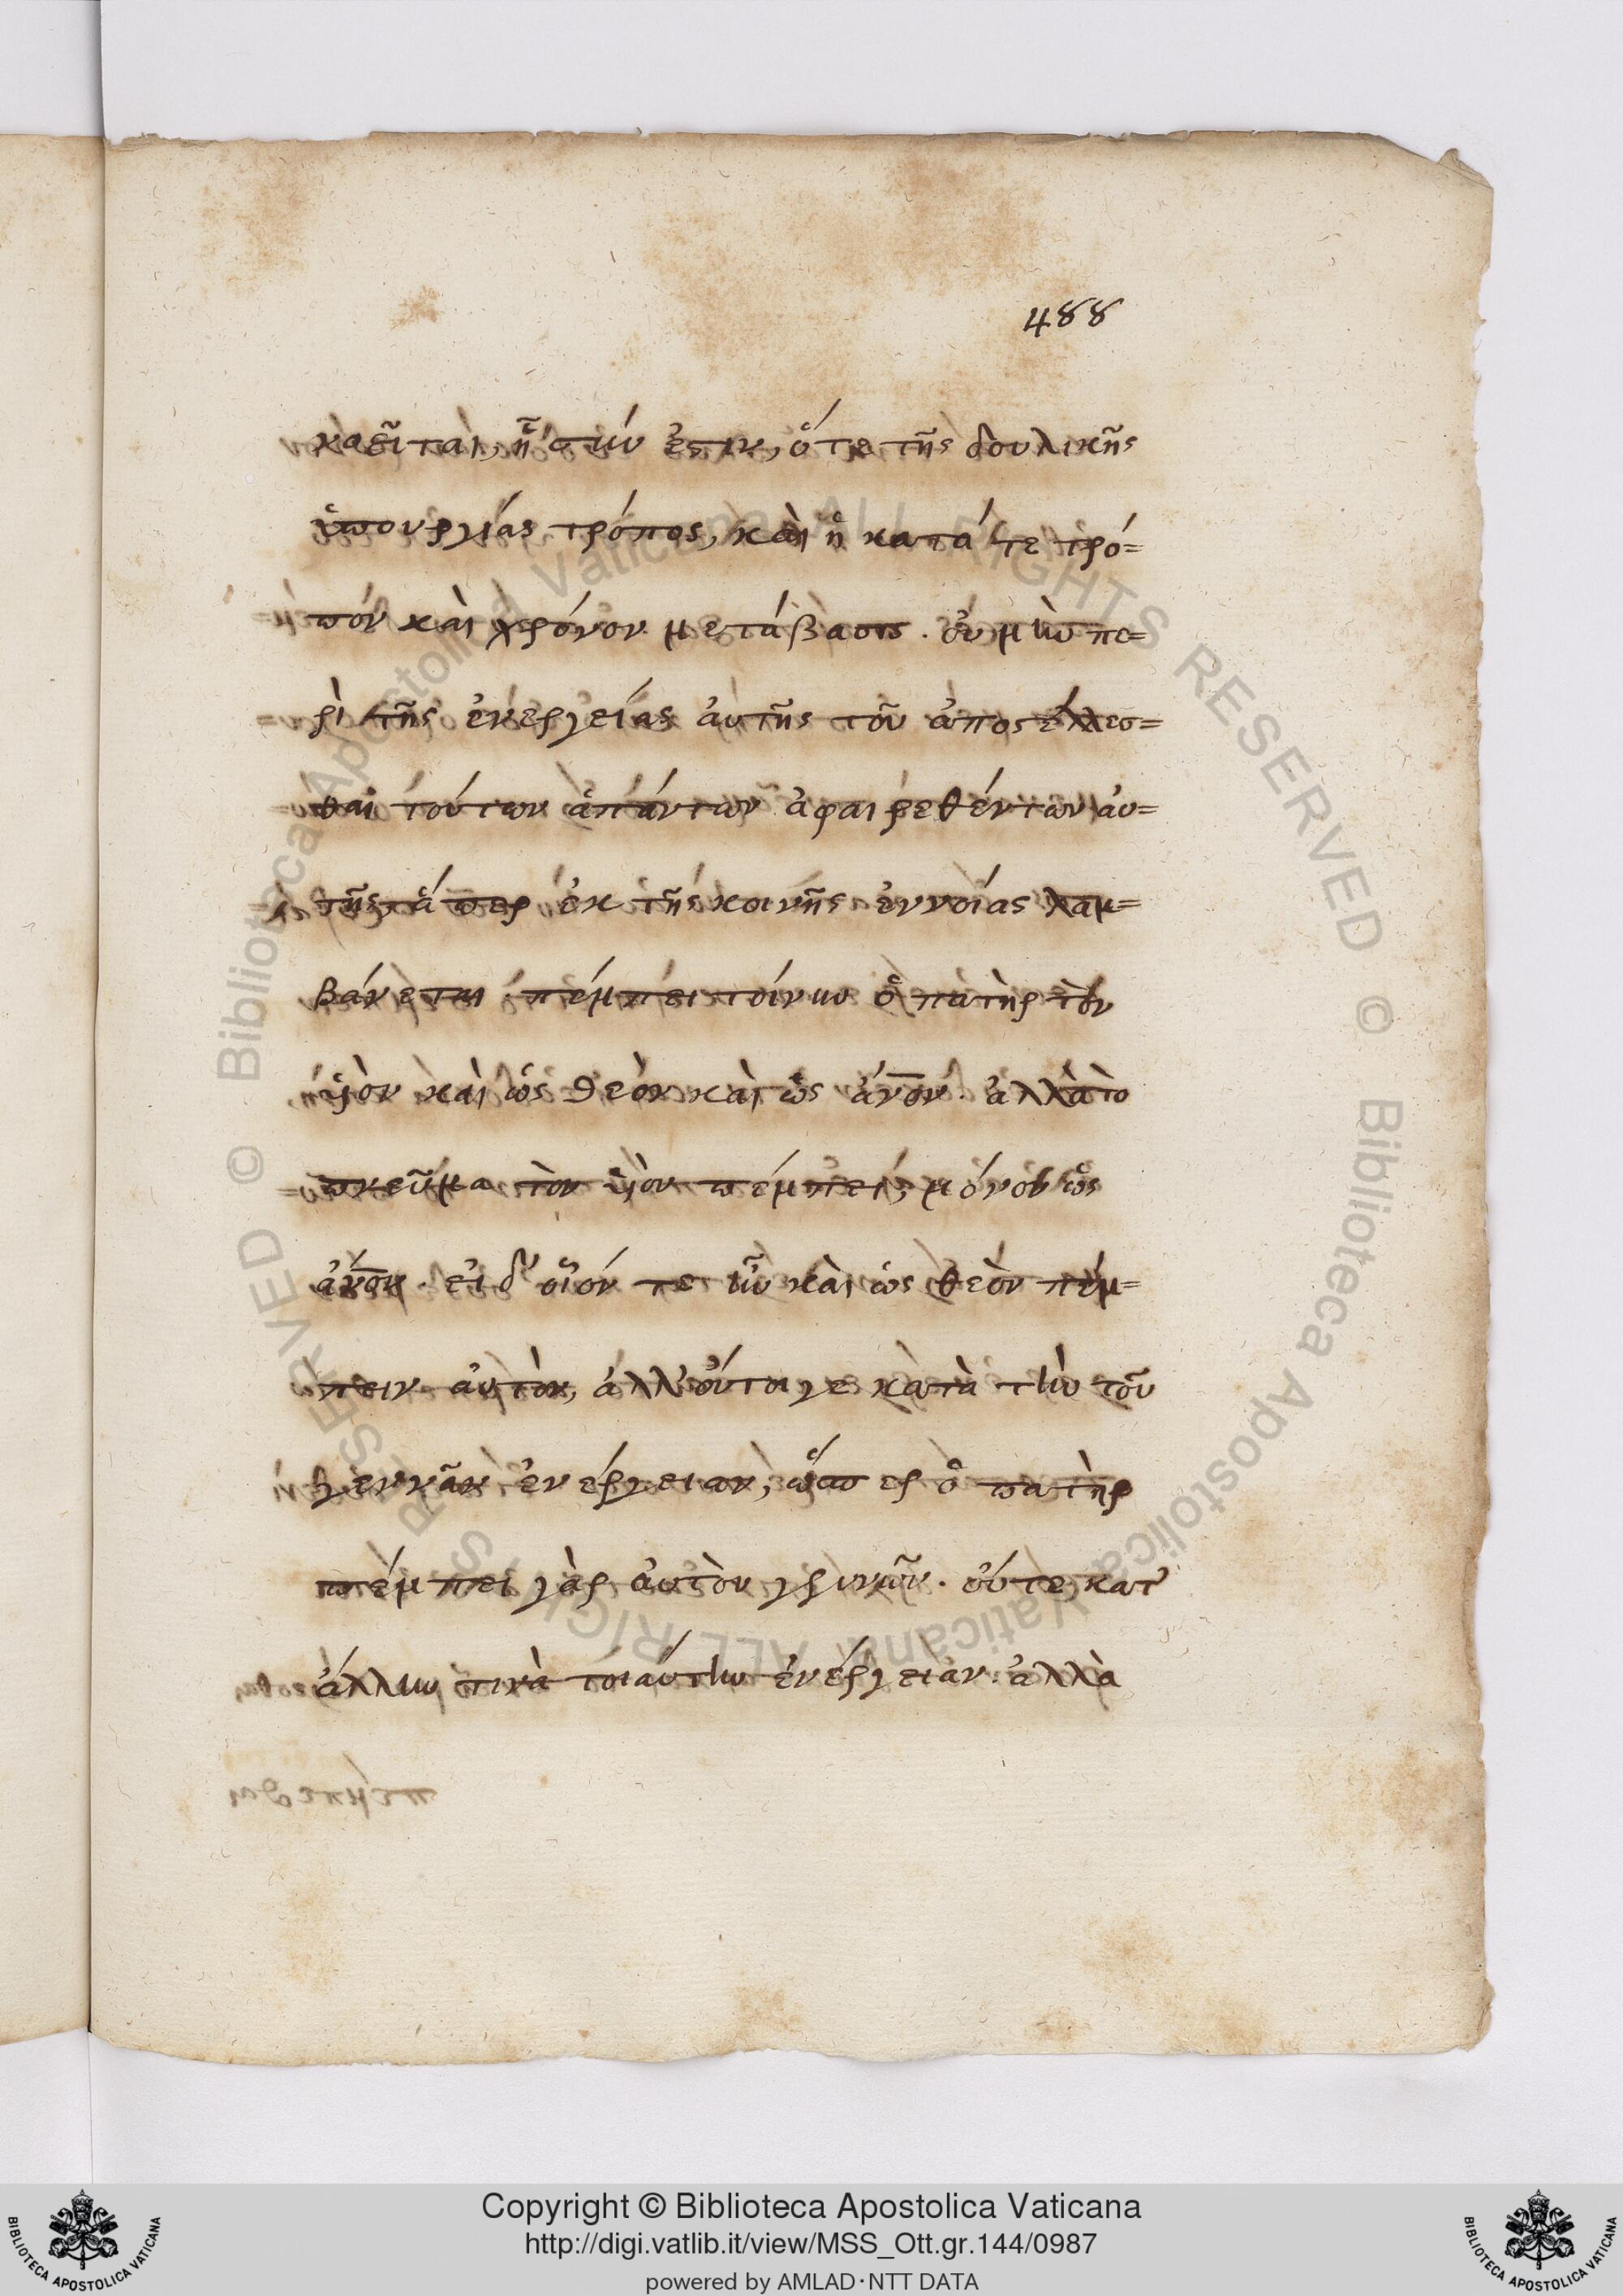 488
καεῖται, ἧστιν ἐστιν, ὅτε τῆς δουλικῆς
ὑπουργίας τρόπος, καὶ ἡ κατά τε τρό=
πον καὶ χρόνον μετάβασις. οὐ μὴν πε=
ρὶ τῆς ἐνεργείας αὐτῆς τοῦ ἀποστέλλεσ=
θαι τούτων ἁπάντων ἀφαιρεθέντων αὐ=
τῆς, ἅπερ ἐκ τῆς κοινῆς ἐννοίας λαμ=
βάνεται. πέμπει τοίνυν ὁ πατὴρ τὸν
υἱὸν καὶ ὡς θεὸν καὶ ὡς ἄνον. ἀλλὰ τὸ
πνεῦμα τὸν υἱὸν πέμπει, μόνον ὡς
ἄνον. εἰ δ' οἷόν τε ἦν καὶ ὡς θεὸν πέμ=
πειν αὐτὸν, ἀλλ' οὔτοι γε κατὰ τὴν τοῦ
γεννᾶν ἐνέργειαν, ὥσπερ ὁ πατὴρ
πέμπει γὰρ αὐτὸν γεννῶν. οὔτε κατ'
ἄλλην τινὰ τοιαύτην ἐνέργειαν. ἀλλὰ
Copyright © Biblioteca Apostolica Vaticana
http://digi.vatlib.it/view/MSS_Ott.gr.144/0987
powered by AMLAD·NTT DATA
BIBLIOTECA APOSTOLICA VATICANA
BIBLIOTECA APOSTOLICA VATICANA
© Biblioteca Apostolica Vaticana ALL RIGHTS RESERVED © Biblioteca Apostolica Vaticana ALL RIGHTS RESERVED